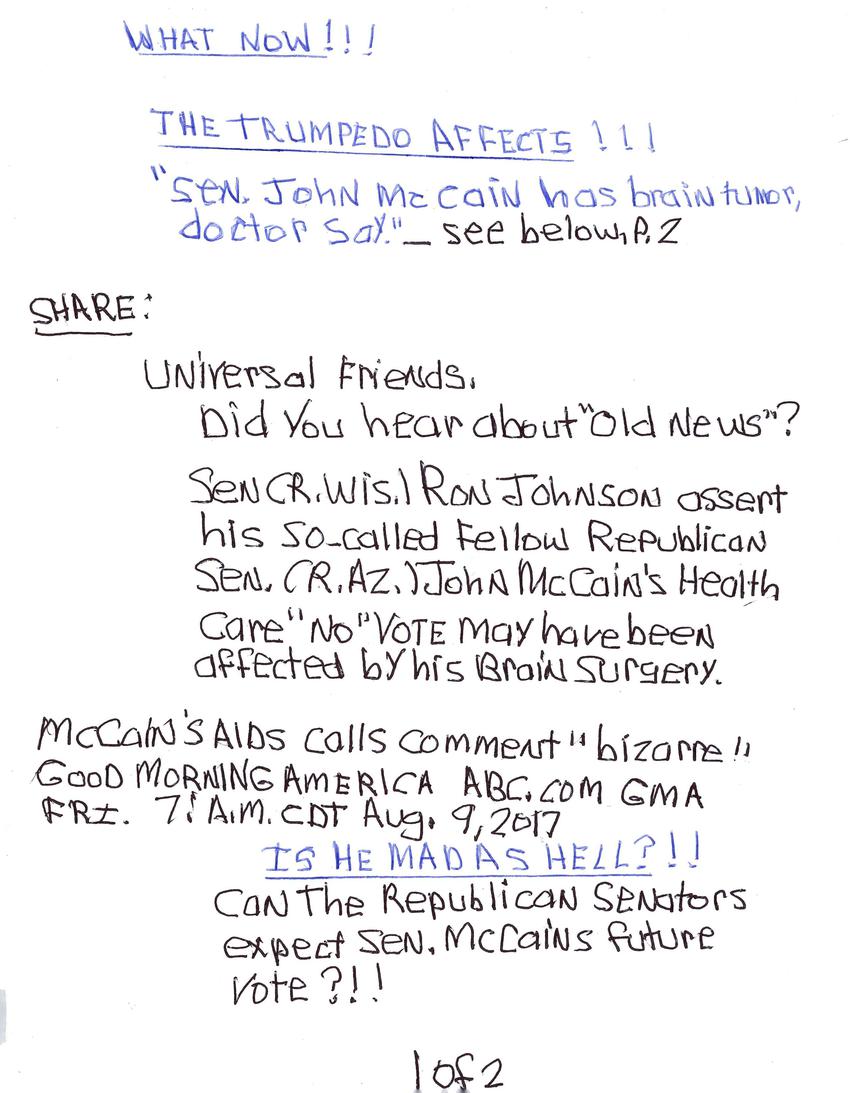 WHAT NOW!!!
THE TRUMPEDO AFFECTS!!!
"SEN. JOHN McCAIN has brain tumor,
doctor say."_ see below, P. 2
SHARE:
UNIVersal Friends,
Did You hear about "Old News"?
SEN (R. Wis.) RON JOHNSON assert
his so-called Fellow Republican
SEN. (R. AZ.) John McCain's Health
Care "NO" VOTE May have been
affected by his Brain Surgery.
McCain'S AIDS calls comment "bizarre"
GOOD MORNING AMERICA ABC.COM GMA
FRI. 7: A.M. CDT Aug. 9, 2017
IS HE MAD AS HELL?!!
CAN The Republican SENators
expect SEN. McCains future
Vote?!!
1 of 2